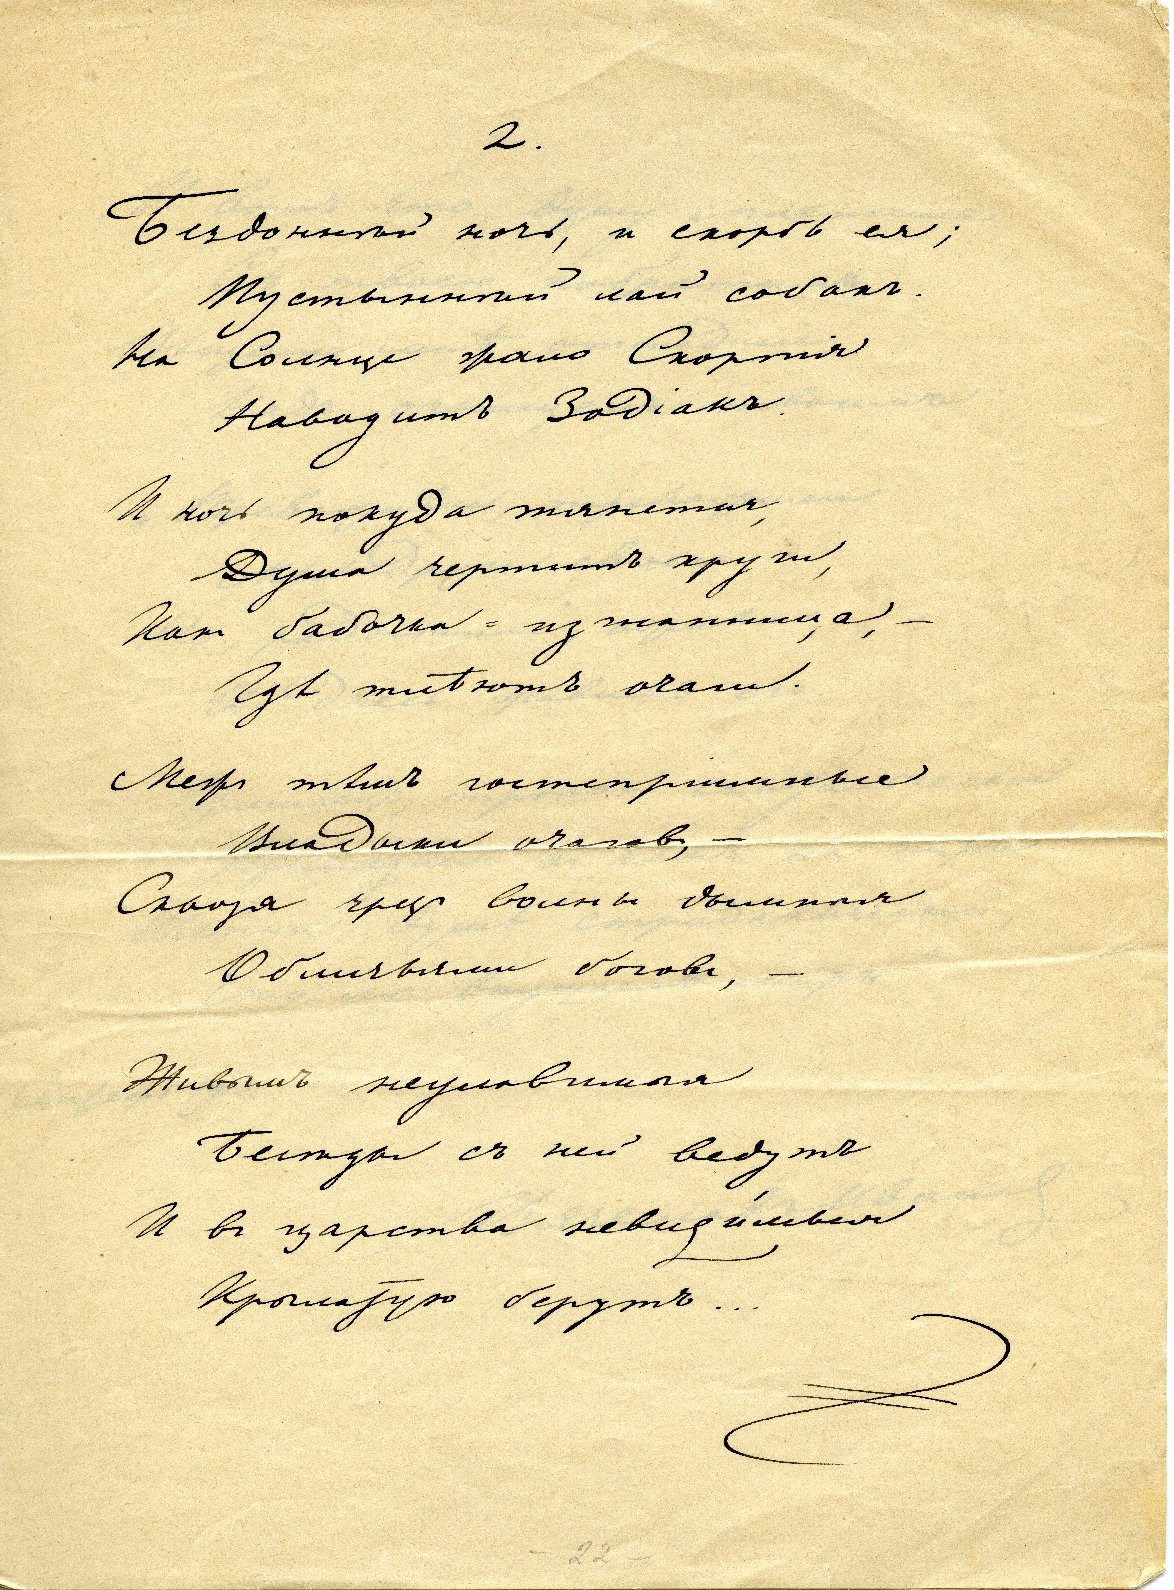 2.
Бездонный ночь, и скорбь ея;
Пустынный лай собакъ.
На Солнце жало Скорпія
Наводитъ Зодіакъ.
И ночь покуда тянется,
Душа чертитъ круги,
Как бабочка-изгнанница, —
Гдѣ тлѣютъ очаги.
Меж тѣмъ гостепріимные
Владыки очагов, —
Сквозя чрез волны дымныя
Обличьями богов, —
Живымъ неуловимыя
Бесѣды съ ней ведутъ
И въ царства невиди́мыя
Крылатую берутъ...
- 22 -